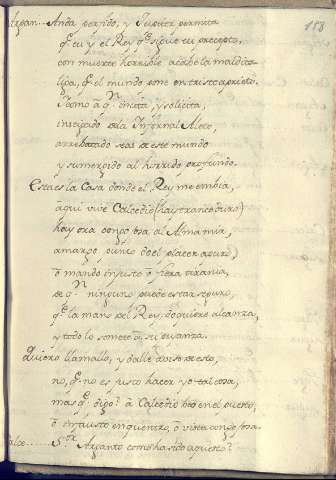 158
Anda perfido, y Jupiter permita
q.e tu y el Rey q.e sigue tu precepto,
con muerte horrible acabe la maldita
liga, q.e el mundo pone en triste aprieto.
y como a q.n incita, y solicita,
insitado dela Infernal Aleto,
arrebatado seas de este mundo
y sumergido al horrido profundo.
Esta es la Casa donde el Rey me embia,
aqui vive Calcedio
hay ora congojosa al Alma mia,
amargo punto do el placer apuro,
o mando injusto o fiera tirania,
de q.n ninguno puede estar seguro,
q.e la mano del Rey, do quiere alcanza,
y todo lo somete a su pujanza.
Quiero llamallo, y dalle aviso de esto,
no, q.e no es justo hacer yo tal cosa,
mas q.e digo? a Calcedio veo en el puesto,
o infausto enquentro, o vista congojosa.
S.or como ha sido aquesto?